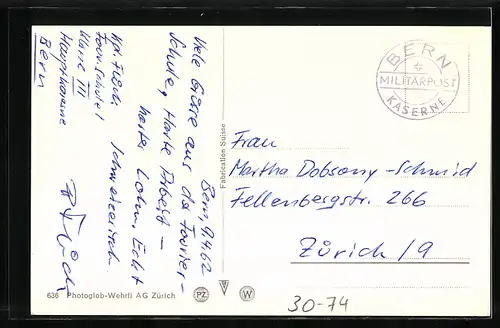 Kpl. Flück
Four. Schule 1
Klasse III
Hauptkaserne
Bern
Bern, 9.4.62
Viele Grüsse aus der Fourier-
Schule, Harte Arbeit –
harter Lohn. Echt
Schweizerisch.
Fabrication Suisse
BERN
MILITÄRPOST
KASERNE
Frau
Martha Dobsony-Schmid
Fellenbergstr. 266
Zürich /9
636 Photoglob-Wehrli AG Zürich
PZ
W
30-74